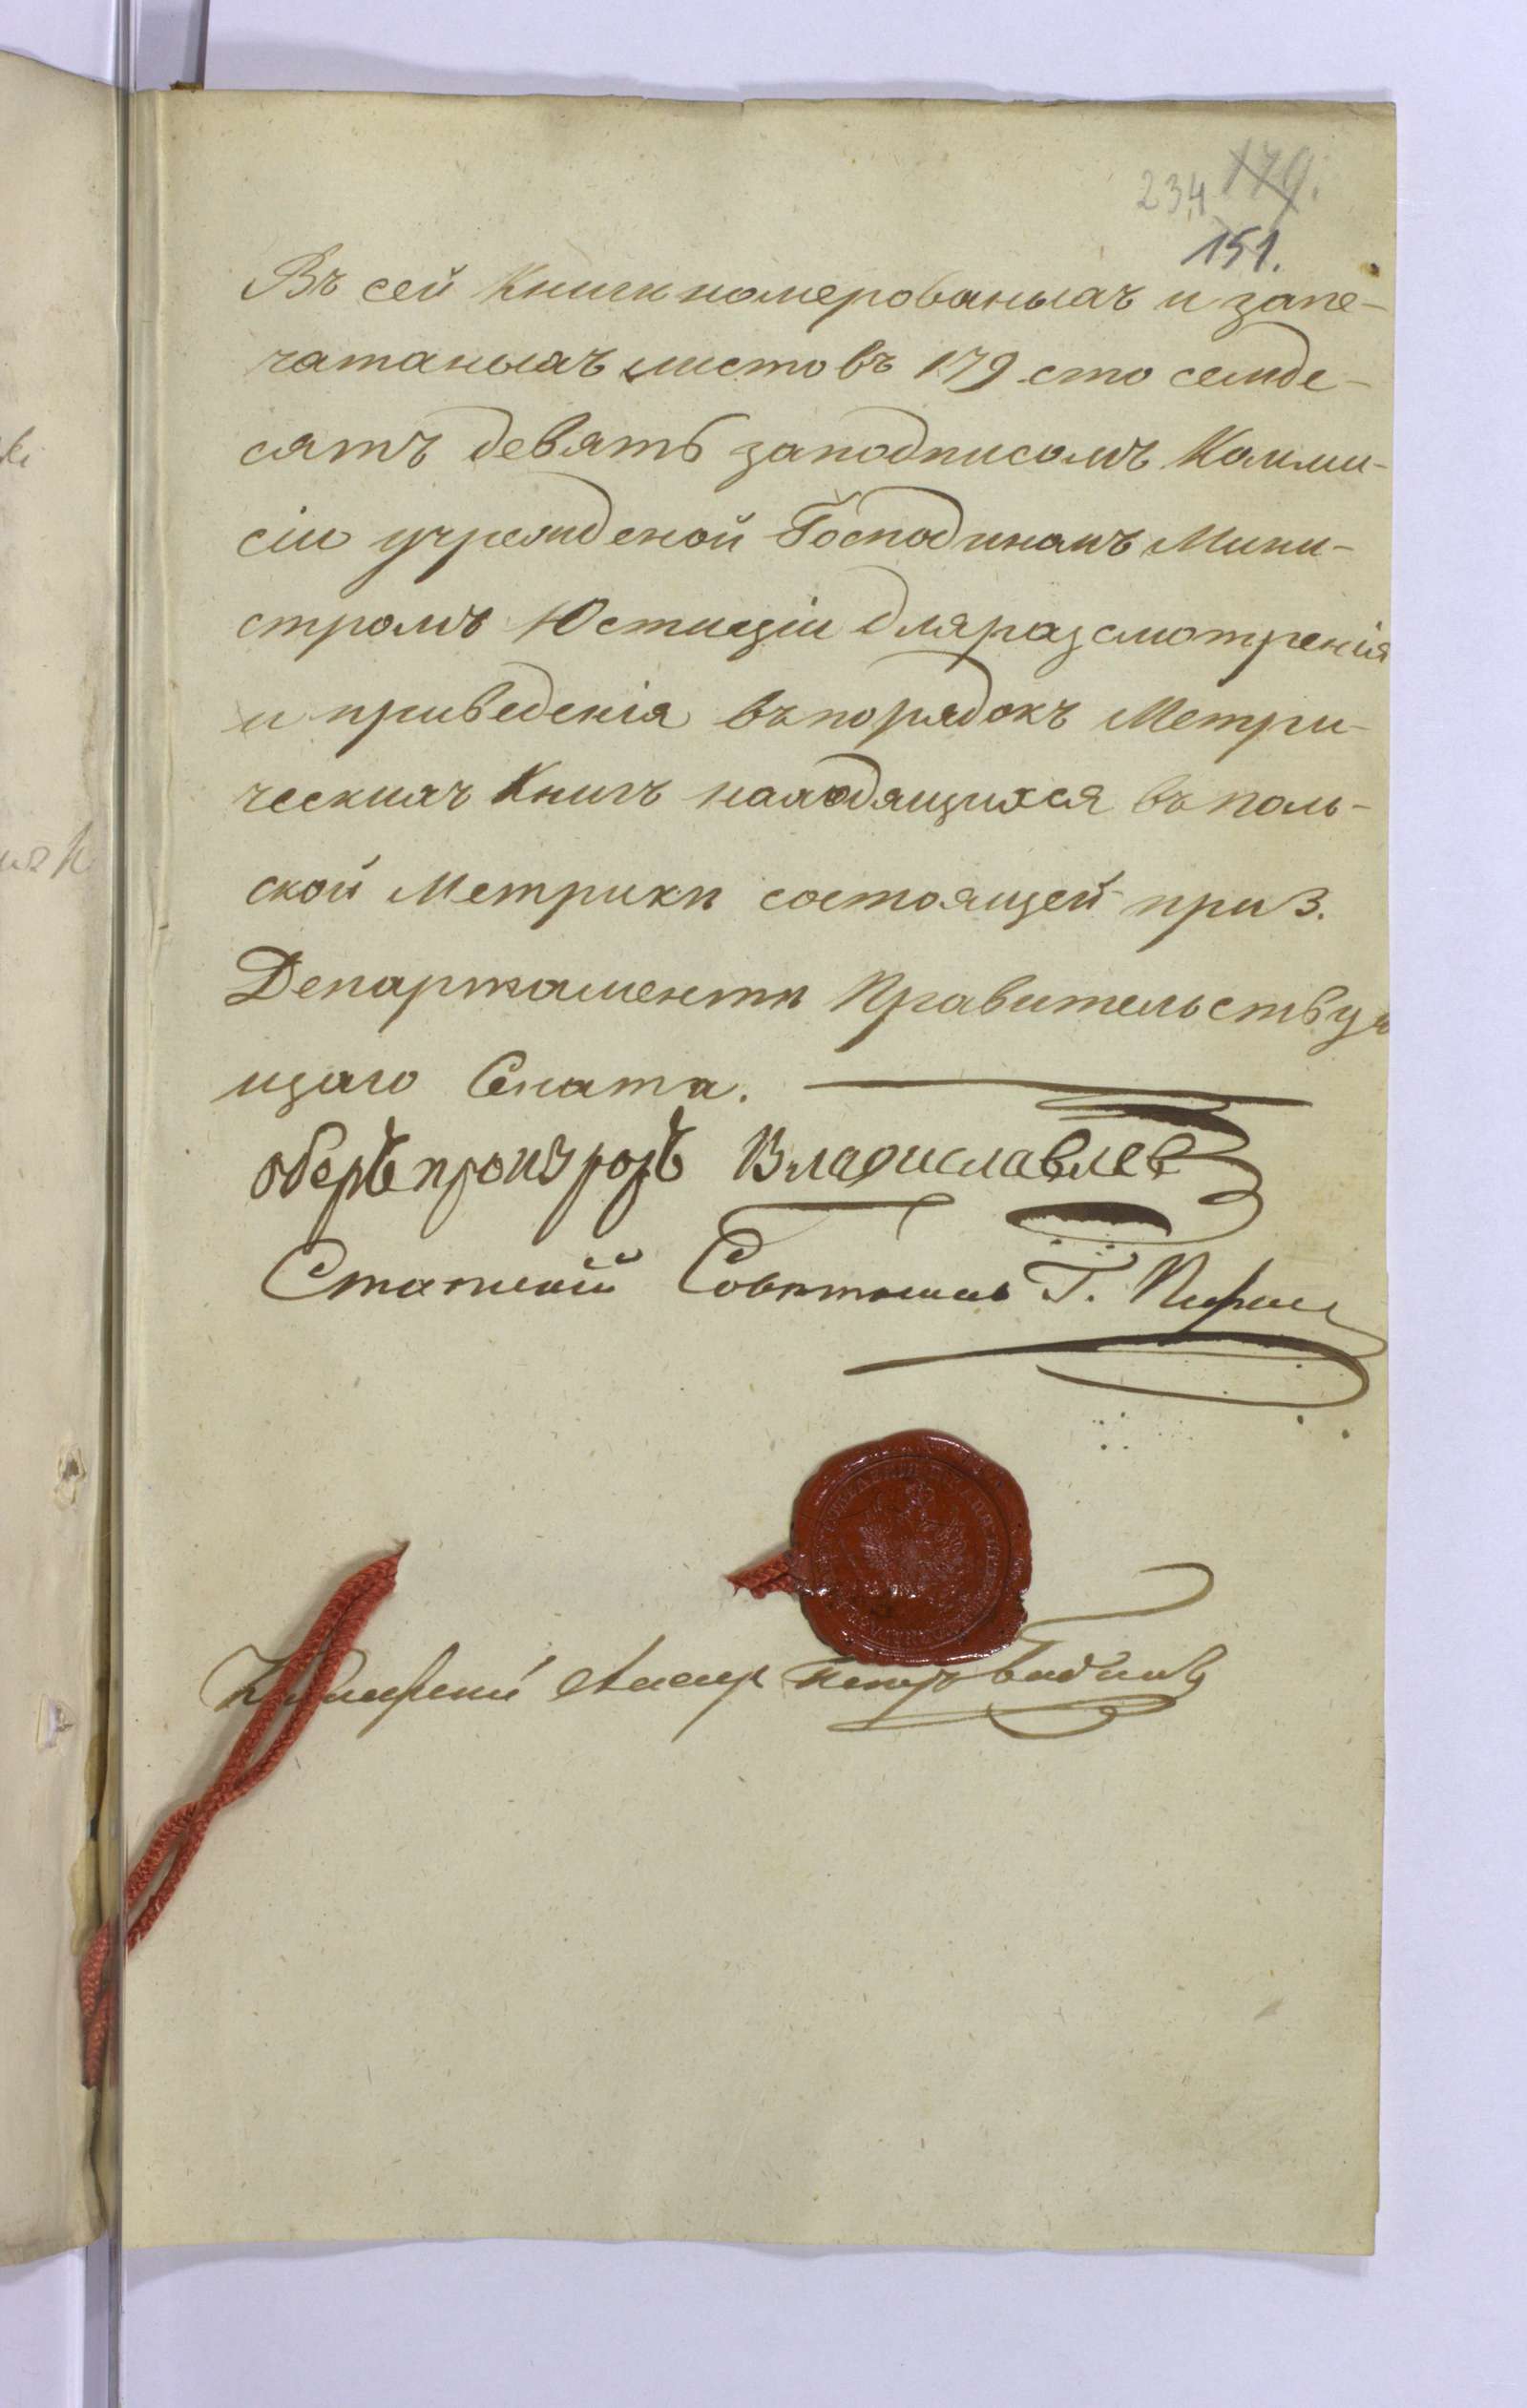 234 179.
151.
Въ сей Книгѣ номерованыхъ и запе-
чатаныхъ листовъ 179 сто семде-
сятъ девять заподписомъ Комми-
сіи учрежденой Господиномъ Мини-
стромъ Юстиціи дляразсмотренія
и приведенія въпорядокъ Метри-
ческихъ Книгъ находящихся въ поль-
ской Метрики состоящей при 3.
Департаментѣ Правительствую
щаго Сената.
оберъпрокуроръ Владиславлев
Статскій Совѣтникъ Г.
Петръ